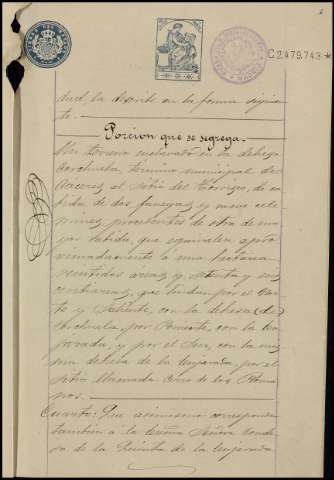 C.2.479,743*
dad, la describe en la forma siguien-
te.
Porcion que se segrega.
Un terreno enclavado en la dehesa
Corchuela, término municipal de
Cáceres al sitio del de ca-
bida de dos fanegas y once cele-
mines procedentes de otra de ma-
yor cabida, que equivalen apro-
ximadamente a una hectárea
veintidos areas y setenta y seis
centiareas, que lindan por el Nor-
te y Saliente, con la dehesa de
Corchuela, por Poniente, con la
y por el Sur, con la mis-
ma dehesa de la por el
sitio llamado Cerro de los
pos.
Cuarto: Que asimismo corresponde
tambien á la Señora Conde-
sa de la Quinta de la Enjarada